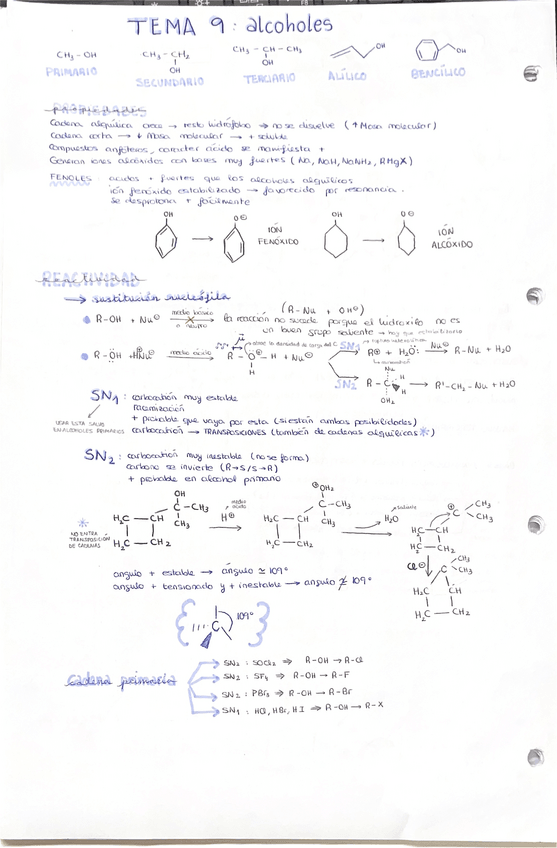 TEMA 9: alcoholes
CH₃-OH
CH₃-CH₂
OH
CH₃-CH-CH₃
OH
OH
OH
PRIMARIO
SECUNDARIO
TERCIARIO
ALÍLICO
BENCÍLICO
PROPIEDADES
Cadena alquílica crece → resto hidrófobo → no se disuelve (↑Masa molecular)
Cadena corta → ↓ Masa molecular → + soluble
Compuestos anfóteros, caracter ácido se manifiesta +
Generan iones alcóxidos con bases muy fuertes (Na, NaH, NaNH₂, RMgX)
FENOLES: acidos + fuertes que los alcoholes alquílicos
ión fenóxido estabilizado → favorecido por resonancia.
Se desprotona + fácilmente
OH
O⊖
IÓN
FENÓXIDO
OH
O⊖
IÓN
ALCÓXIDO
REACTIVIDAD
→ sustitución nucleófila
(R-Nu + OH⊖)
R-OH + Nu⊖
medio básico
o neutro
la reacción no sucede porque el hidroxilo no es
un buen grupo saliente
R-ÖH
medio ácido
R-O-H + Nu⊖
H
SN₁
R⊕ + H₂Ö:
Nu⊖
R-Nu + H₂O
SN₂
Nu
R-C
H
H
OH₂
R'-CH₂-Nu + H₂O
SN₁: carbocatión muy estable
racemización
+ probable que vaya por esta (si están ambas posibilidades)
carbocatión → TRANSPOSICIONES (también de cadenas alquílicas*)
EN ALCOHOLES PRIMARIOS
SN₂: carbocatión muy inestable (no se forma)
carbono se invierte (R→S/S→R)
+ probable en alcohol primario
*
NO ENTRA
TRANSPOSICIÓN
DE CADENAS
OH
C-CH₃
CH₃
H₂C-CH
H₂C-CH₂
medio
ácido
H⊕
⊕OH₂
C-CH₃
CH₃
H₂C-CH
H₂C-CH₂
H₂O
⊕
C
CH₃
CH₃
H₂C-CH
H₂C-CH₂
Cl⊖
Cl
CH₃
CH₃
C
H₂C
CH
H₂C-CH₂
angulo + estable → ángulo ≃ 109º
angulo + tensionado y + inestable → angulo ≄ 109º
C
109º
Cadena primaria
SN₂: SOCl₂ ⇒ R-OH → R-Cl
SN₂: SF₄ ⇒ R-OH → R-F
SN₂: PBr₃ ⇒ R-OH → R-Br
SN₁: HCl, HBr, HI ⇒ R-OH → R-X